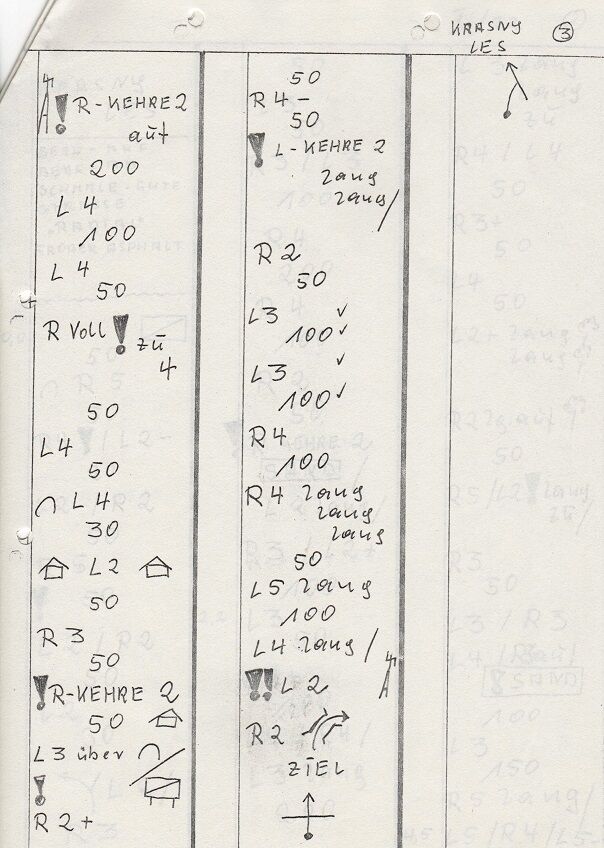 KRASNY
LES
3
! R-KEHRE 2
auf
200
L 4
100
L 4
50
R Voll ! zu
4
50
L4
50
L 4
30
L2
50
R 3
50
! R-KEHRE 2
50
L3 über
!
R 2+
50
R 4-
50
! L-KEHRE 2
lang
lang/
R 2
50
L3 ✓
100 ✓
L3 ✓
100 ✓
R4
100
R4 lang
lang
lang
50
L5 lang
100
L4 lang /
!! L 2
R2
ZIEL